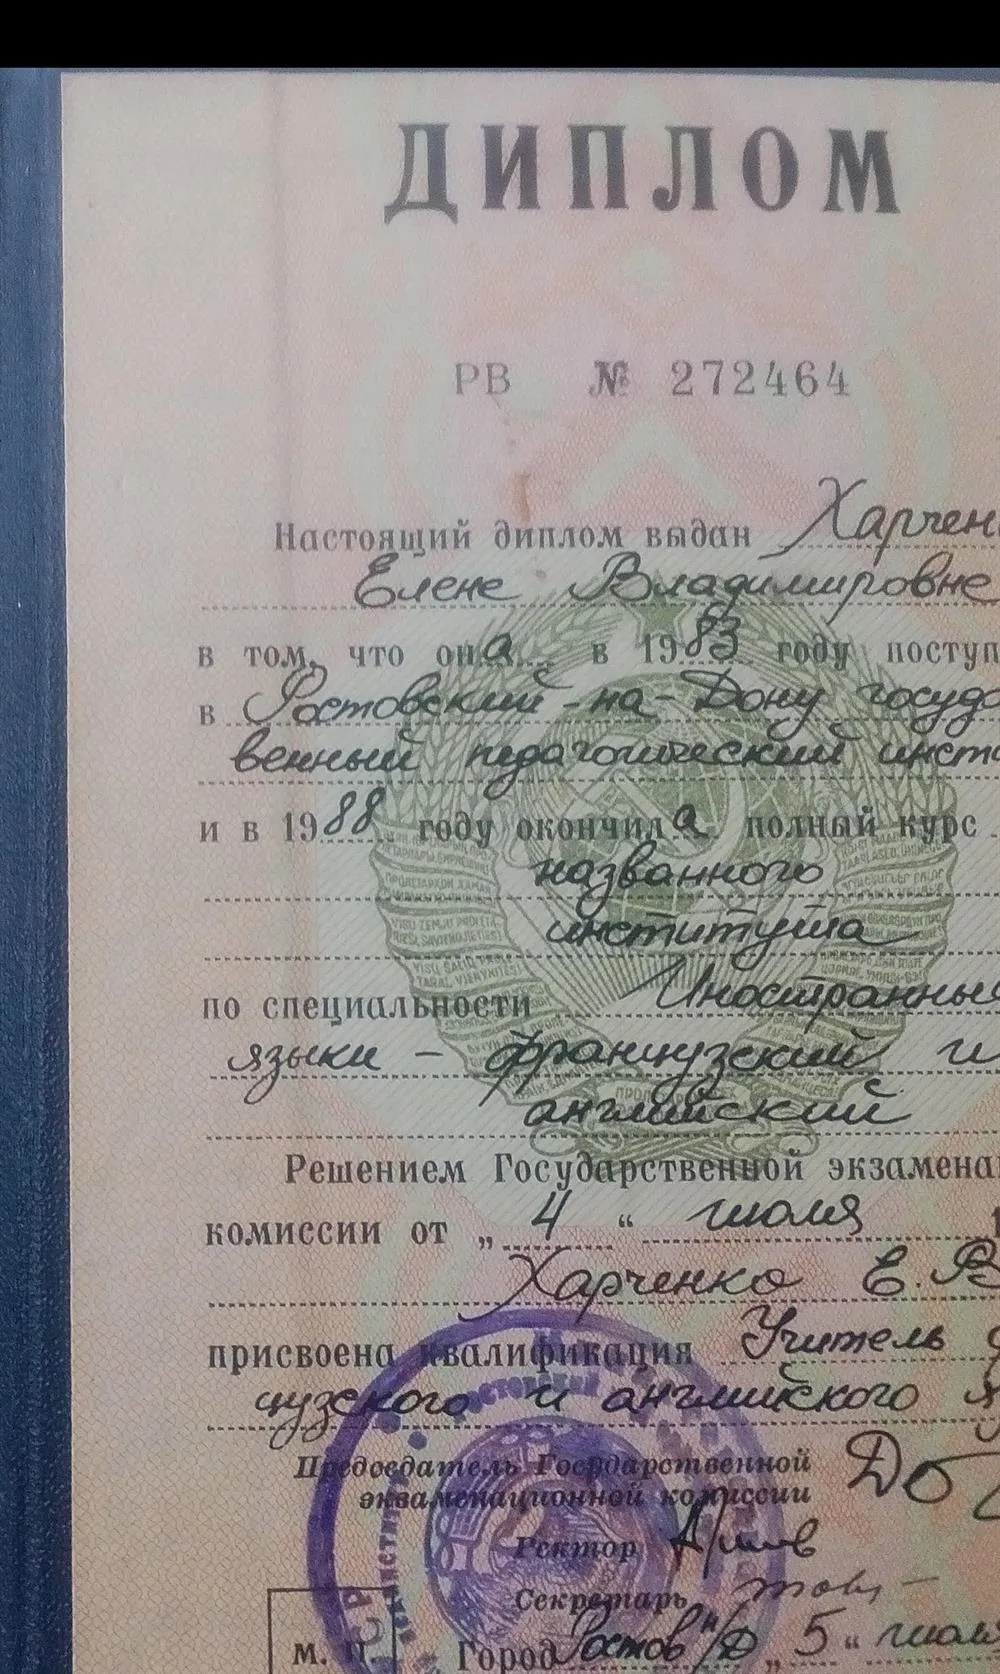 ДИПЛОМ
РВ № 272464
Настоящий диплом выдан Харчен
Елене Владимировне
в том, что она в 1983 году поступ
в Ростовский-на-Дону госуда
венный педагогический инст
и в 1988 году окончила полный курс
названного
института
по специальности Иностранные
языки - французский и
английский
Решением Государственной экзамена
комиссии от „ 4 “ июля 1
Харченко Е. В
присвоена квалификация Учитель ф
цузского и английского я
Председатель Государственной
экзаменационной комиссии
Ректор
Секретарь
М. П. Город Ростов н/Д „ 5 “ июля